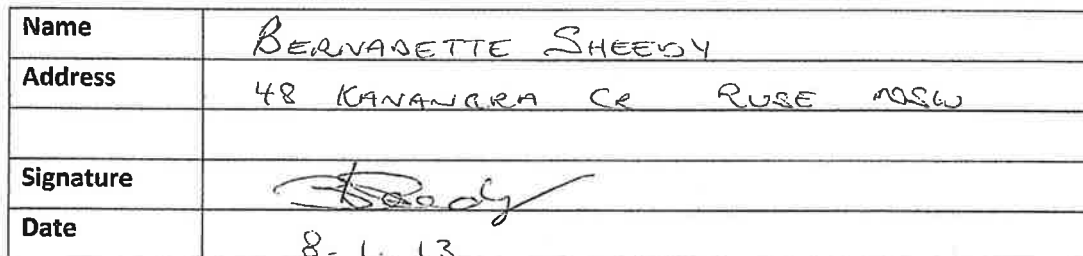 Name BERNADETTE SHEEDY
Address 48 KANANGRA CR RUSE NSW
Signature
Date 8-1-13